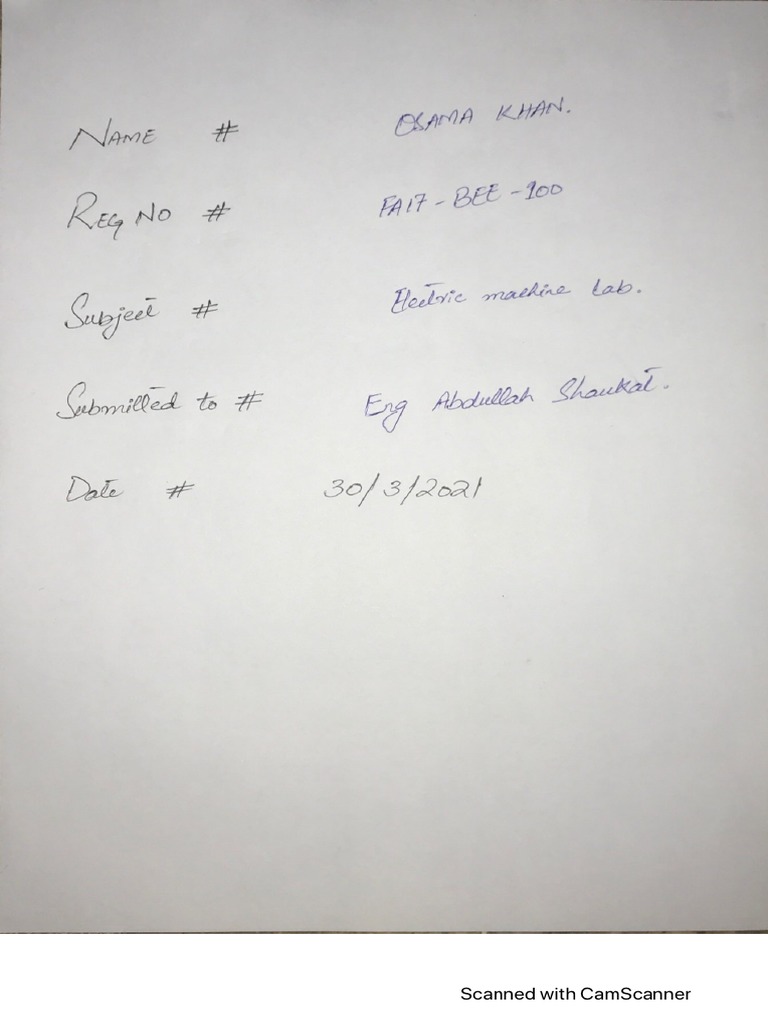 NAME # OSAMA KHAN.
REG NO # FA17-BEE-100
Subject # Electric machine Lab.
Submitted to # Eng Abdullah Shaukat.
Date # 30/3/2021
Scanned with CamScanner